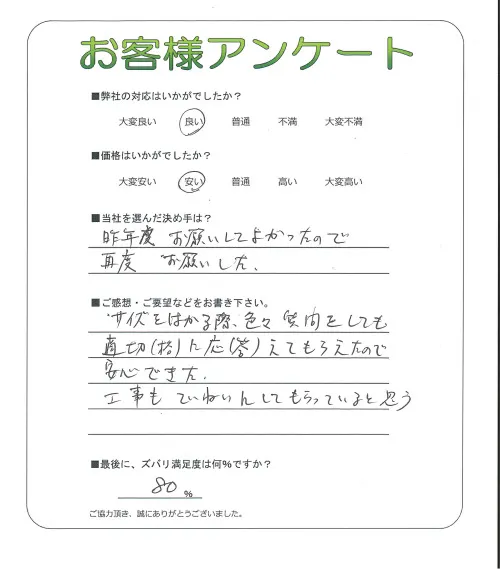 お客様アンケート
■弊社の対応はいかがでしたか？
大変良い 良い 普通 不満 大変不満
■価格はいかがでしたか？
大変安い 安い 普通 高い 大変高い
■当社を選んだ決め手は？
昨年度 お願いしてよかったので
再度 お願いした．
■ご感想・ご要望などをお書き下さい。
サイズをはかる際、色々 質問をしても
適切()に応(答)えてもらえたので
安心できた．
工事も ていねいにしてもらっていると思う
■最後に、ズバリ満足度は何%ですか？
80 %
ご協力頂き、誠にありがとうございました。